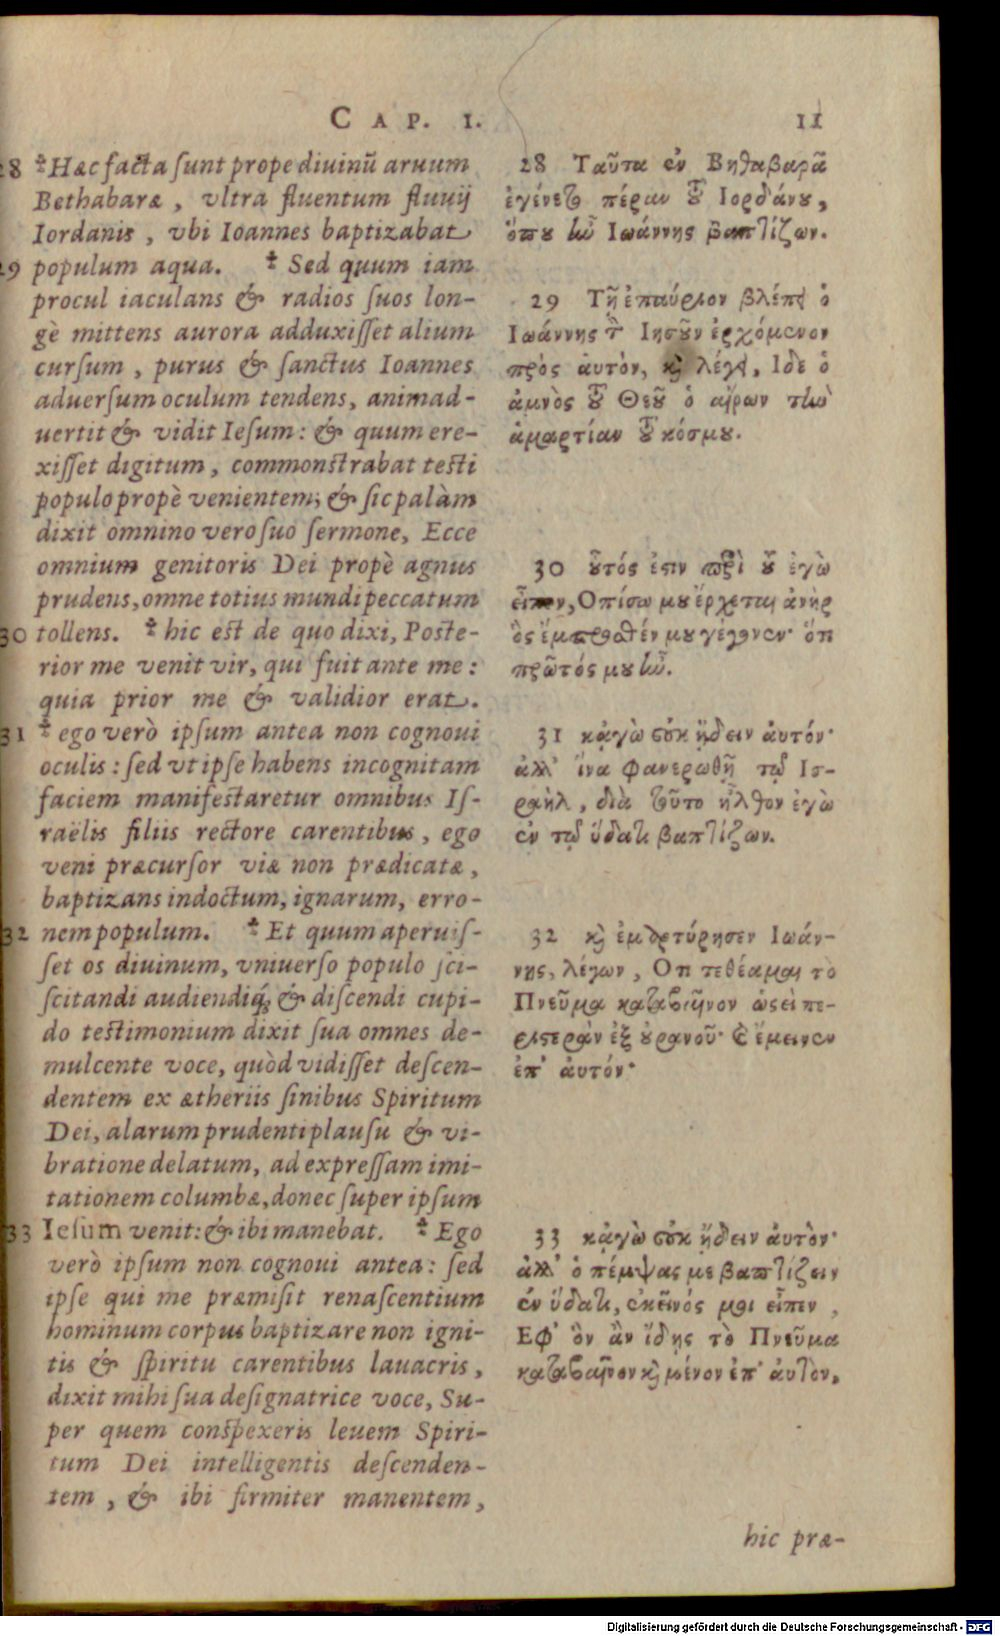 CAP. I.
11
28 ‡Hæc facta sunt prope diuinũ aruum
Bethabaræ, vltra fluentum fluuij
Iordanis, vbi Ioannes baptizabat
29 populum aqua. ‡ Sed quum iam
procul iaculans & radios suos lon-
gè mittens aurora adduxisset alium
cursum, purus & sanctus Ioannes
aduersum oculum tendens, animad-
uertit & vidit Iesum: & quum ere-
xisset digitum, commonstrabat testi
populo propè venientem; & sic palàm
dixit omnino vero suo sermone, Ecce
omnium genitoris Dei propè agnus
prudens, omne totius mundi peccatum
30 tollens. ‡ hic est de quo dixi, Poste-
rior me venit vir, qui fuit ante me:
quia prior me & validior erat.
31 ‡ ego verò ipsum antea non cognoui
oculis: sed vt ipse habens incognitam
faciem manifestaretur omnibus Is-
raëlis filiis rectore carentibus, ego
veni præcursor viæ non prædicatæ,
baptizans indoctum, ignarum, erro-
32 nem populum. ‡ Et quum aperuis-
set os diuinum, vniuerso populo sci-
scitandi audiendiq́; & discendi cupi-
do testimonium dixit sua omnes de-
mulcente voce, quòd vidisset descen-
dentem ex ætheriis sinibus Spiritum
Dei, alarum prudenti plausu & vi-
bratione delatum, ad expressam imi-
tationem columbæ, donec super ipsum
33 Iesum venit: & ibi manebat. ‡ Ego
verò ipsum non cognoui antea: sed
ipse qui me præmisit renascentium
hominum corpus baptizare non igni-
tis & spiritu carentibus lauacris,
dixit mihi sua designatrice voce, Su-
per quem conspexeris leuem Spiri-
tum Dei intelligentis descenden-
tem, & ibi firmiter manentem,
28 Ταῦτα ἐν Βηθαβαρᾶ
ἐγένετο πέραν τοῦ Ἰορδάνου,
ὅπου ἦν Ἰωάννης βαπτίζων.
29 Τῇ ἐπαύριον βλέπει ὁ
Ἰωάννης τὸν Ἰησοῦν ἐρχόμενον
πρὸς ἀυτὸν, καὶ λέγει, Ἴδε ὁ
ἀμνὸς τοῦ Θεοῦ ὁ αἴρων τὴν
ἁμαρτίαν τοῦ κόσμου.
30 οὗτός ἐστιν περὶ οὗ ἐγὼ
εἶπον, Οπίσω μου ἔρχεται ἀνὴρ
ὃς ἔμπροσθέν μου γέγονεν· ὅτι
πρῶτός μου ἦν.
31 κᾀγὼ οὐκ ᾔδειν ἀυτόν·
ἀλλ' ἵνα φανερωθῇ τῷ Ισ-
ραὴλ, διὰ τοῦτο ἦλθον ἐγὼ
ἐν τῷ ὕδατι βαπτίζων.
32 καὶ ἐμαρτύρησεν Ιωάν-
νης, λέγων, Οτι τεθέαμαι τὸ
Πνεῦμα καταβαῖνον ὡσεὶ πε-
ριστερὰν ἐξ οὐρανοῦ· καὶ ἔμεινεν
ἐπ' ἀυτόν·
33 κᾀγὼ οὐκ ᾔδειν ἀυτὸν·
ἀλλ' ὁ πέμψας με βαπτίζειν
ἐν ὕδατι, ἐκεῖνός μοι εἶπεν,
Εφ' ὃν ἂν ἴδῃς τὸ Πνεῦμα
καταβαῖνον καὶ μένον ἐπ' ἀυτὸν,
hic præ-
Digitalisierung gefördert durch die Deutsche Forschungsgemeinschaft - DFG